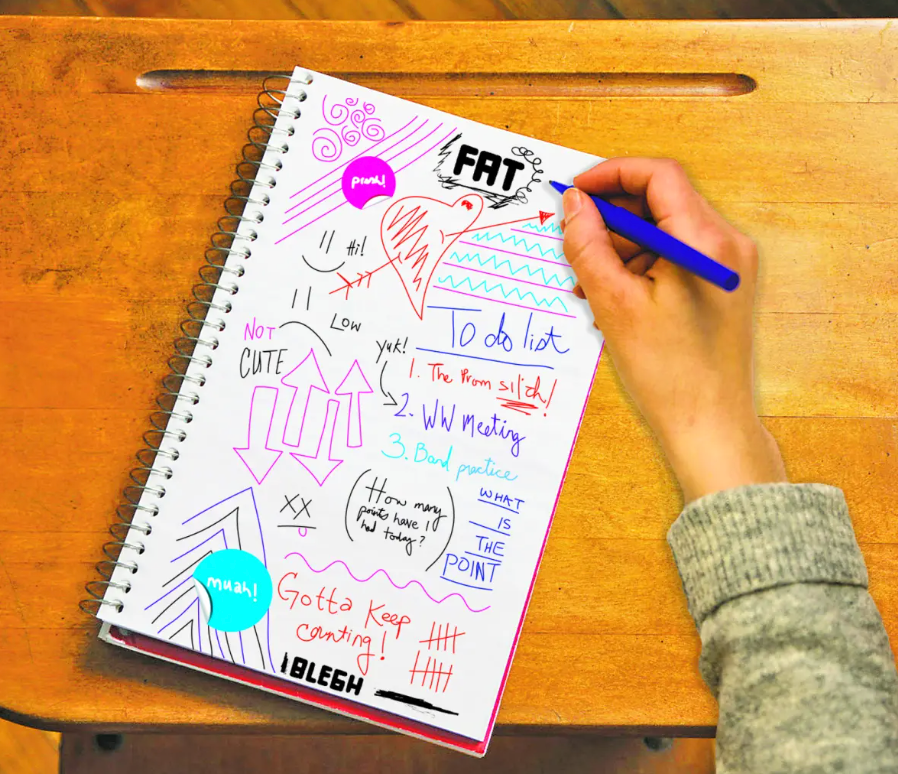 FAT
Hi!
Low
NOT
CUTE
To do list
yuk!
1. The Prom
2. WW Meeting
3. Band practice
XX
(How many
points have I
had today?)
WHAT
IS
THE
POINT
muah!
Gotta Keep
counting!
BLEGH